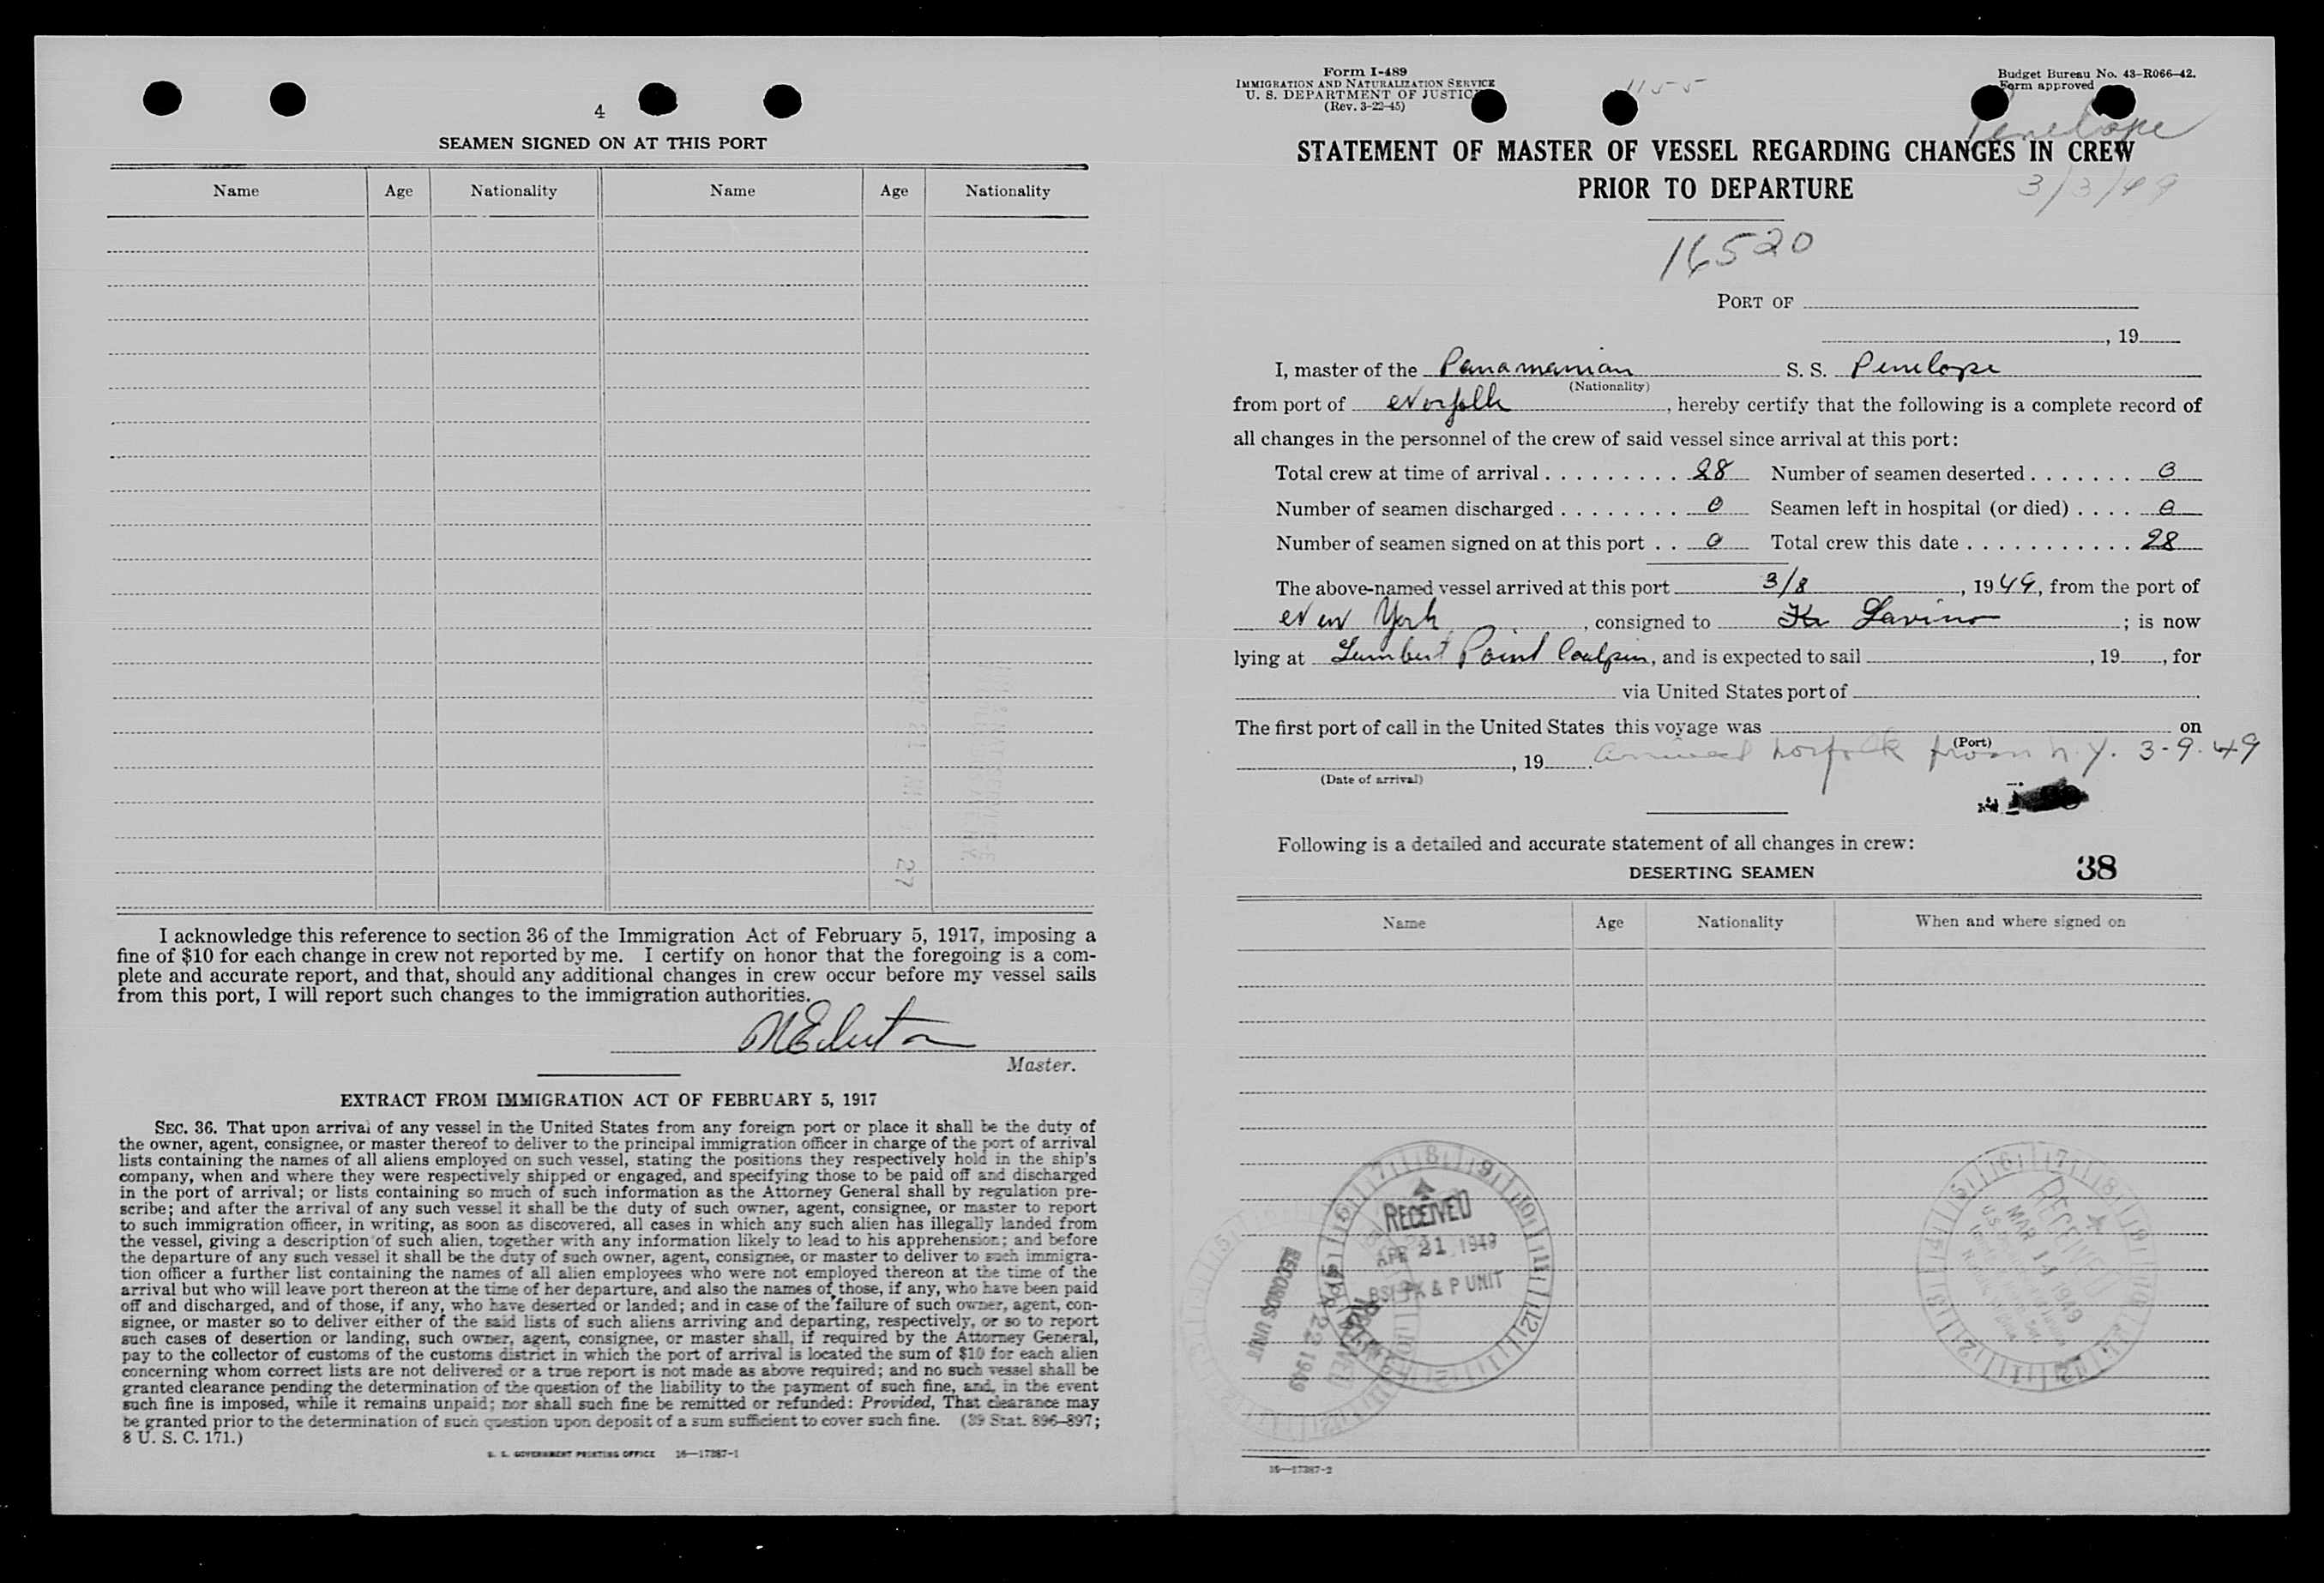 4
SEAMEN SIGNED ON AT THIS PORT
Name Age Nationality Name Age Nationality
27
I acknowledge this reference to section 36 of the Immigration Act of February 5, 1917, imposing a
fine of $10 for each change in crew not reported by me. I certify on honor that the foregoing is a com-
plete and accurate report, and that, should any additional changes in crew occur before my vessel sails
from this port, I will report such changes to the immigration authorities.
Master.
EXTRACT FROM IMMIGRATION ACT OF FEBRUARY 5, 1917
SEC. 36. That upon arrival of any vessel in the United States from any foreign port or place it shall be the duty of
the owner, agent, consignee, or master thereof to deliver to the principal immigration officer in charge of the port of arrival
lists containing the names of all aliens employed on such vessel, stating the positions they respectively hold in the ship's
company, when and where they were respectively shipped or engaged, and specifying those to be paid off and discharged
in the port of arrival; or lists containing so much of such information as the Attorney General shall by regulation pre-
scribe; and after the arrival of any such vessel it shall be the duty of such owner, agent, consignee, or master to report
to such immigration officer, in writing, as soon as discovered, all cases in which any such alien has illegally landed from
the vessel, giving a description of such alien, together with any information likely to lead to his apprehension; and before
the departure of any such vessel it shall be the duty of such owner, agent, consignee, or master to deliver to such immigra-
tion officer a further list containing the names of all alien employees who were not employed thereon at the time of the
arrival but who will leave port thereon at the time of her departure, and also the names of those, if any, who have been paid
off and discharged, and of those, if any, who have deserted or landed; and in case of the failure of such owner, agent, con-
signee, or master so to deliver either of the said lists of such aliens arriving and departing, respectively, or so to report
such cases of desertion or landing, such owner, agent, consignee, or master shall, if required by the Attorney General,
pay to the collector of customs of the customs district in which the port of arrival is located the sum of $10 for each alien
concerning whom correct lists are not delivered or a true report is not made as above required; and no such vessel shall be
granted clearance pending the determination of the question of the liability to the payment of such fine, and, in the event
such fine is imposed, while it remains unpaid; nor shall such fine be remitted or refunded: Provided, That clearance may
be granted prior to the determination of such question upon deposit of a sum sufficient to cover such fine. (39 Stat. 896–897;
8 U. S. C. 171.)
U. S. GOVERNMENT PRINTING OFFICE 16—17387-1
Form I-489
IMMIGRATION AND NATURALIZATION SERVICE
U. S. DEPARTMENT OF JUSTICE
(Rev. 3-22-45)
1155
Budget Bureau No. 43-R066-42.
Form approved
Penelope
STATEMENT OF MASTER OF VESSEL REGARDING CHANGES IN CREW
PRIOR TO DEPARTURE
3/3/49
16520
PORT OF
, 19
I, master of the Panamanian S. S. Penelope
(Nationality)
from port of Norfolk, hereby certify that the following is a complete record of
all changes in the personnel of the crew of said vessel since arrival at this port:
Total crew at time of arrival 28 Number of seamen deserted 0
Number of seamen discharged 0 Seamen left in hospital (or died) 0
Number of seamen signed on at this port 0 Total crew this date 28
The above-named vessel arrived at this port 3/8, 1949, from the port of
New York, consigned to Lavino; is now
lying at Lambert Point Coalpier, and is expected to sail , 19 , for
via United States port of
The first port of call in the United States this voyage was on
(Port)
, 19 . arrived Norfolk from N.Y. 3-9-49
(Date of arrival)
Following is a detailed and accurate statement of all changes in crew:
38
DESERTING SEAMEN
Name Age Nationality When and where signed on
RECEIVED
APR 21 1949
BSI PX & P UNIT
RECORDS UNIT
APR 22 1949
RECEIVED
RECEIVED
MAR 14 1949
16—17387-2